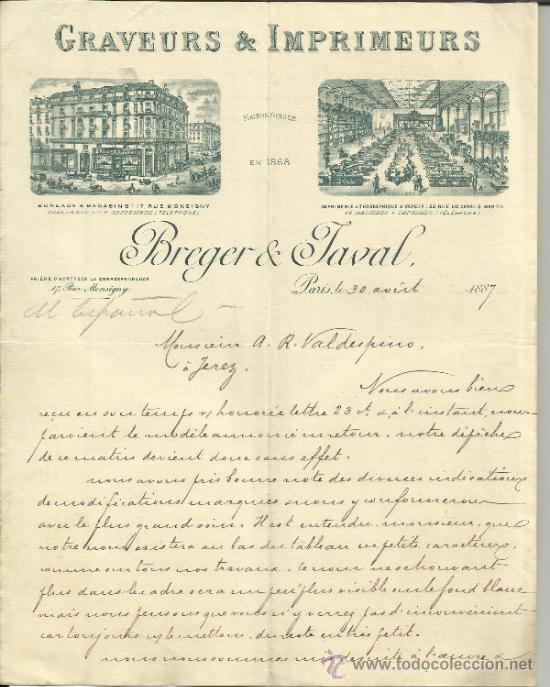 GRAVEURS & IMPRIMEURS
MAISON FONDÉE
EN 1868
BUREAUX & MAGASINS 17 RUE MONSIGNY
SEPTEMBRE (TÉLÉPHONE)
IMPRIMERIE LITHOGRAPHIQUE À VAPEUR
MACHINES À IMPRIMER (TÉLÉPHONE)
Breger & Javal.
PRIÈRE D'ADRESSER LA CORRESPONDANCE
17, Rue Monsigny
Paris, le 30 août 1887
Al Español
Monsieur A. R. Valdespino.
à Jerez
Nous avons bien
reçu en son temps v/ honorée lettre 23 ct & à l'instant, nous
parvient le modèle annoncé en retour. notre dépêche
de ce matin devient donc sans effet.
nous avons pris bonne note des diverses indications
de modifications marquées & nous y conformerons
avec le plus grand soin. Il est entendu, monsieur, que
notre nom existera au bas du tableau en petits caractères,
comme sur tous nos travaux. Ce nom ne se trouvant
plus dans le cadre sera un peu plus visible sur le fond blanc
mais nous pensons que vous n'y verrez pas d'inconvénient
car toujours n/ le mettons, du reste en très petit.
nous nous sommes mis de suite à l'œuvre &
todocoleccion
www.todocoleccion.net